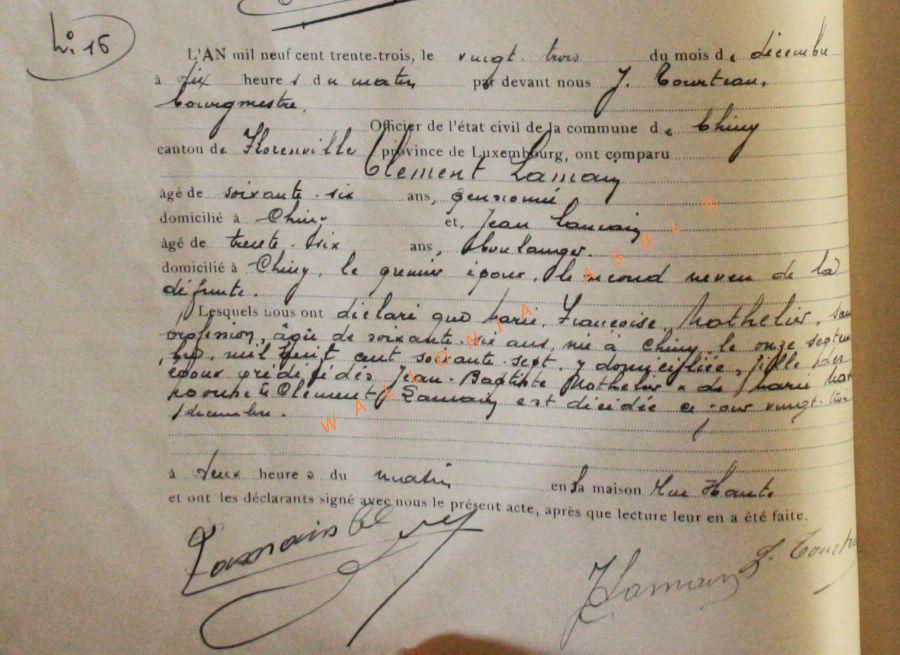 N° 16
L'AN mil neuf cent trente-trois, le vingt-trois du mois de décembre
à dix heures du matin par devant nous J. Tourteau,
bourgmestre,
Officier de l'état civil de la commune de Chiny
canton de Florenville province de Luxembourg, ont comparu
Clément Lamain
âgé de soixante-six ans, pensionné
domicilié à Chiny et, Jean Lamain
âgé de trente-six ans, boulanger.
domicilié à Chiny, le premier époux, le second neveu de la
défunte.
Lesquels nous ont déclaré que Marie Françoise Nothelier, sans
profession, âgée de soixante-six ans, née à Chiny le onze septem
bre mil huit cent soixante-sept, y domiciliée, fille des
époux prédécédés Jean-Baptiste Nothelier & de Marie
Clément Lamain est décédée ce jour vingt-trois
décembre.
à deux heures du matin en sa maison Rue Haute
et ont les déclarants signé avec nous le présent acte, après que lecture leur en a été faite.
Lamain Cl
J Lamain J. Tourteau
WALLONIA ASBL ®